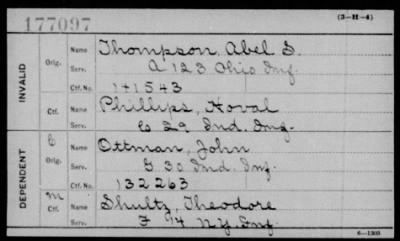 177097
(3-H-4)
INVALID
Orig.
Name Thompson, Abel S.
Serv. A 123 Ohio Inf.
Ctf. No. 141543
Ctf.
Name Phillips, Noval
Serv. C 29 Ind. Inf.
DEPENDENT
C
Orig.
Name Ottman, John
Serv. G 30 Ind. Inf.
Ctf. No. 132263
M
Ctf.
Name Shultz, Theodore
Serv. F 94 N.Y. Inf.
6-1303